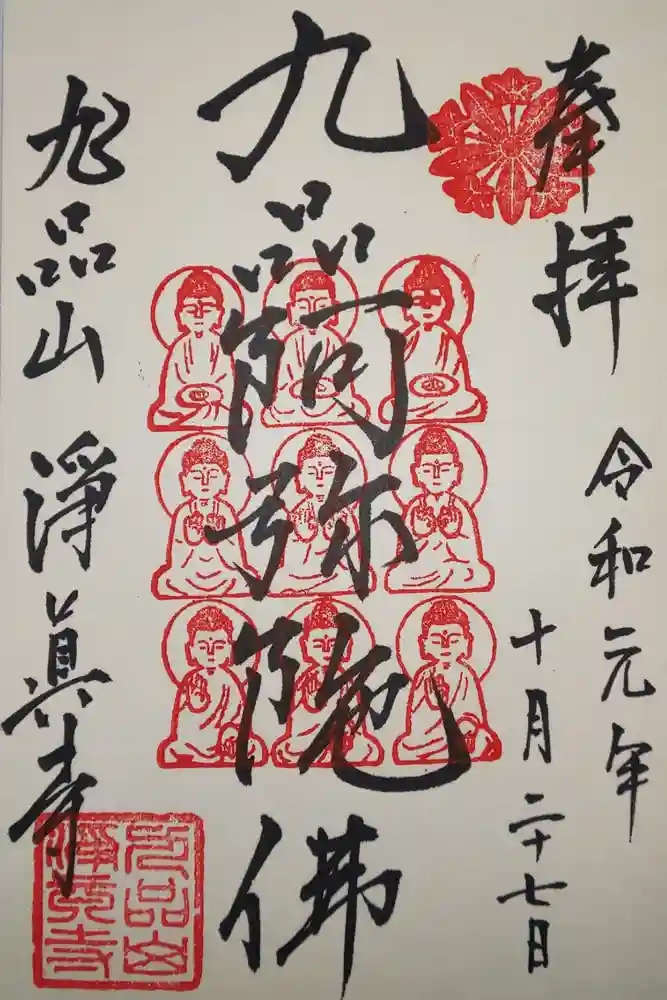 奉拝
令和元年
十月二十七日
九品阿弥陀佛
九品山
淨眞寺
九品山
淨眞寺